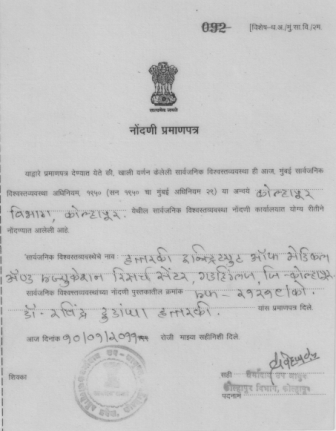 092
[विशेष-ध.आ./मु.सा.वि/३म.
नोंदणी प्रमाणपत्र
याद्वारे प्रमाणपत्र देण्यात येते की, खाली वर्णन केलेली सार्वजनिक विश्वस्तव्यवस्था ही आज, मुंबई सार्वजनिक
विश्वस्तव्यवस्था अधिनियम, १९५० (सन १९५० चा मुंबई अधिनियम २९) या अन्वये कोल्हापूर
विभाग, कोल्हापूर. येथील सार्वजनिक विश्वस्तव्यवस्था नोंदणी कार्यालयात योग्य रीतीने
नोंदण्यात आलेली आहे.
सार्वजनिक विश्वस्तव्यवस्थेचे नाव हत्तरकी इन्स्टिट्युट ऑफ मेडिकल
अँण्ड एज्युकेशन रिसर्च सेंटर, गडहिंग्लज, जि-कोल्हापूर
सार्वजनिक विश्वस्तव्यवस्थांच्या नोंदणी पुस्तकातील क्रमांक
डॉ. रविंद्र हत्तरकी. यास प्रमाणपत्र दिले.
आज दिनांक रोजी माझ्या सहीनिशी दिले.
शिक्का
सही
पदनाम